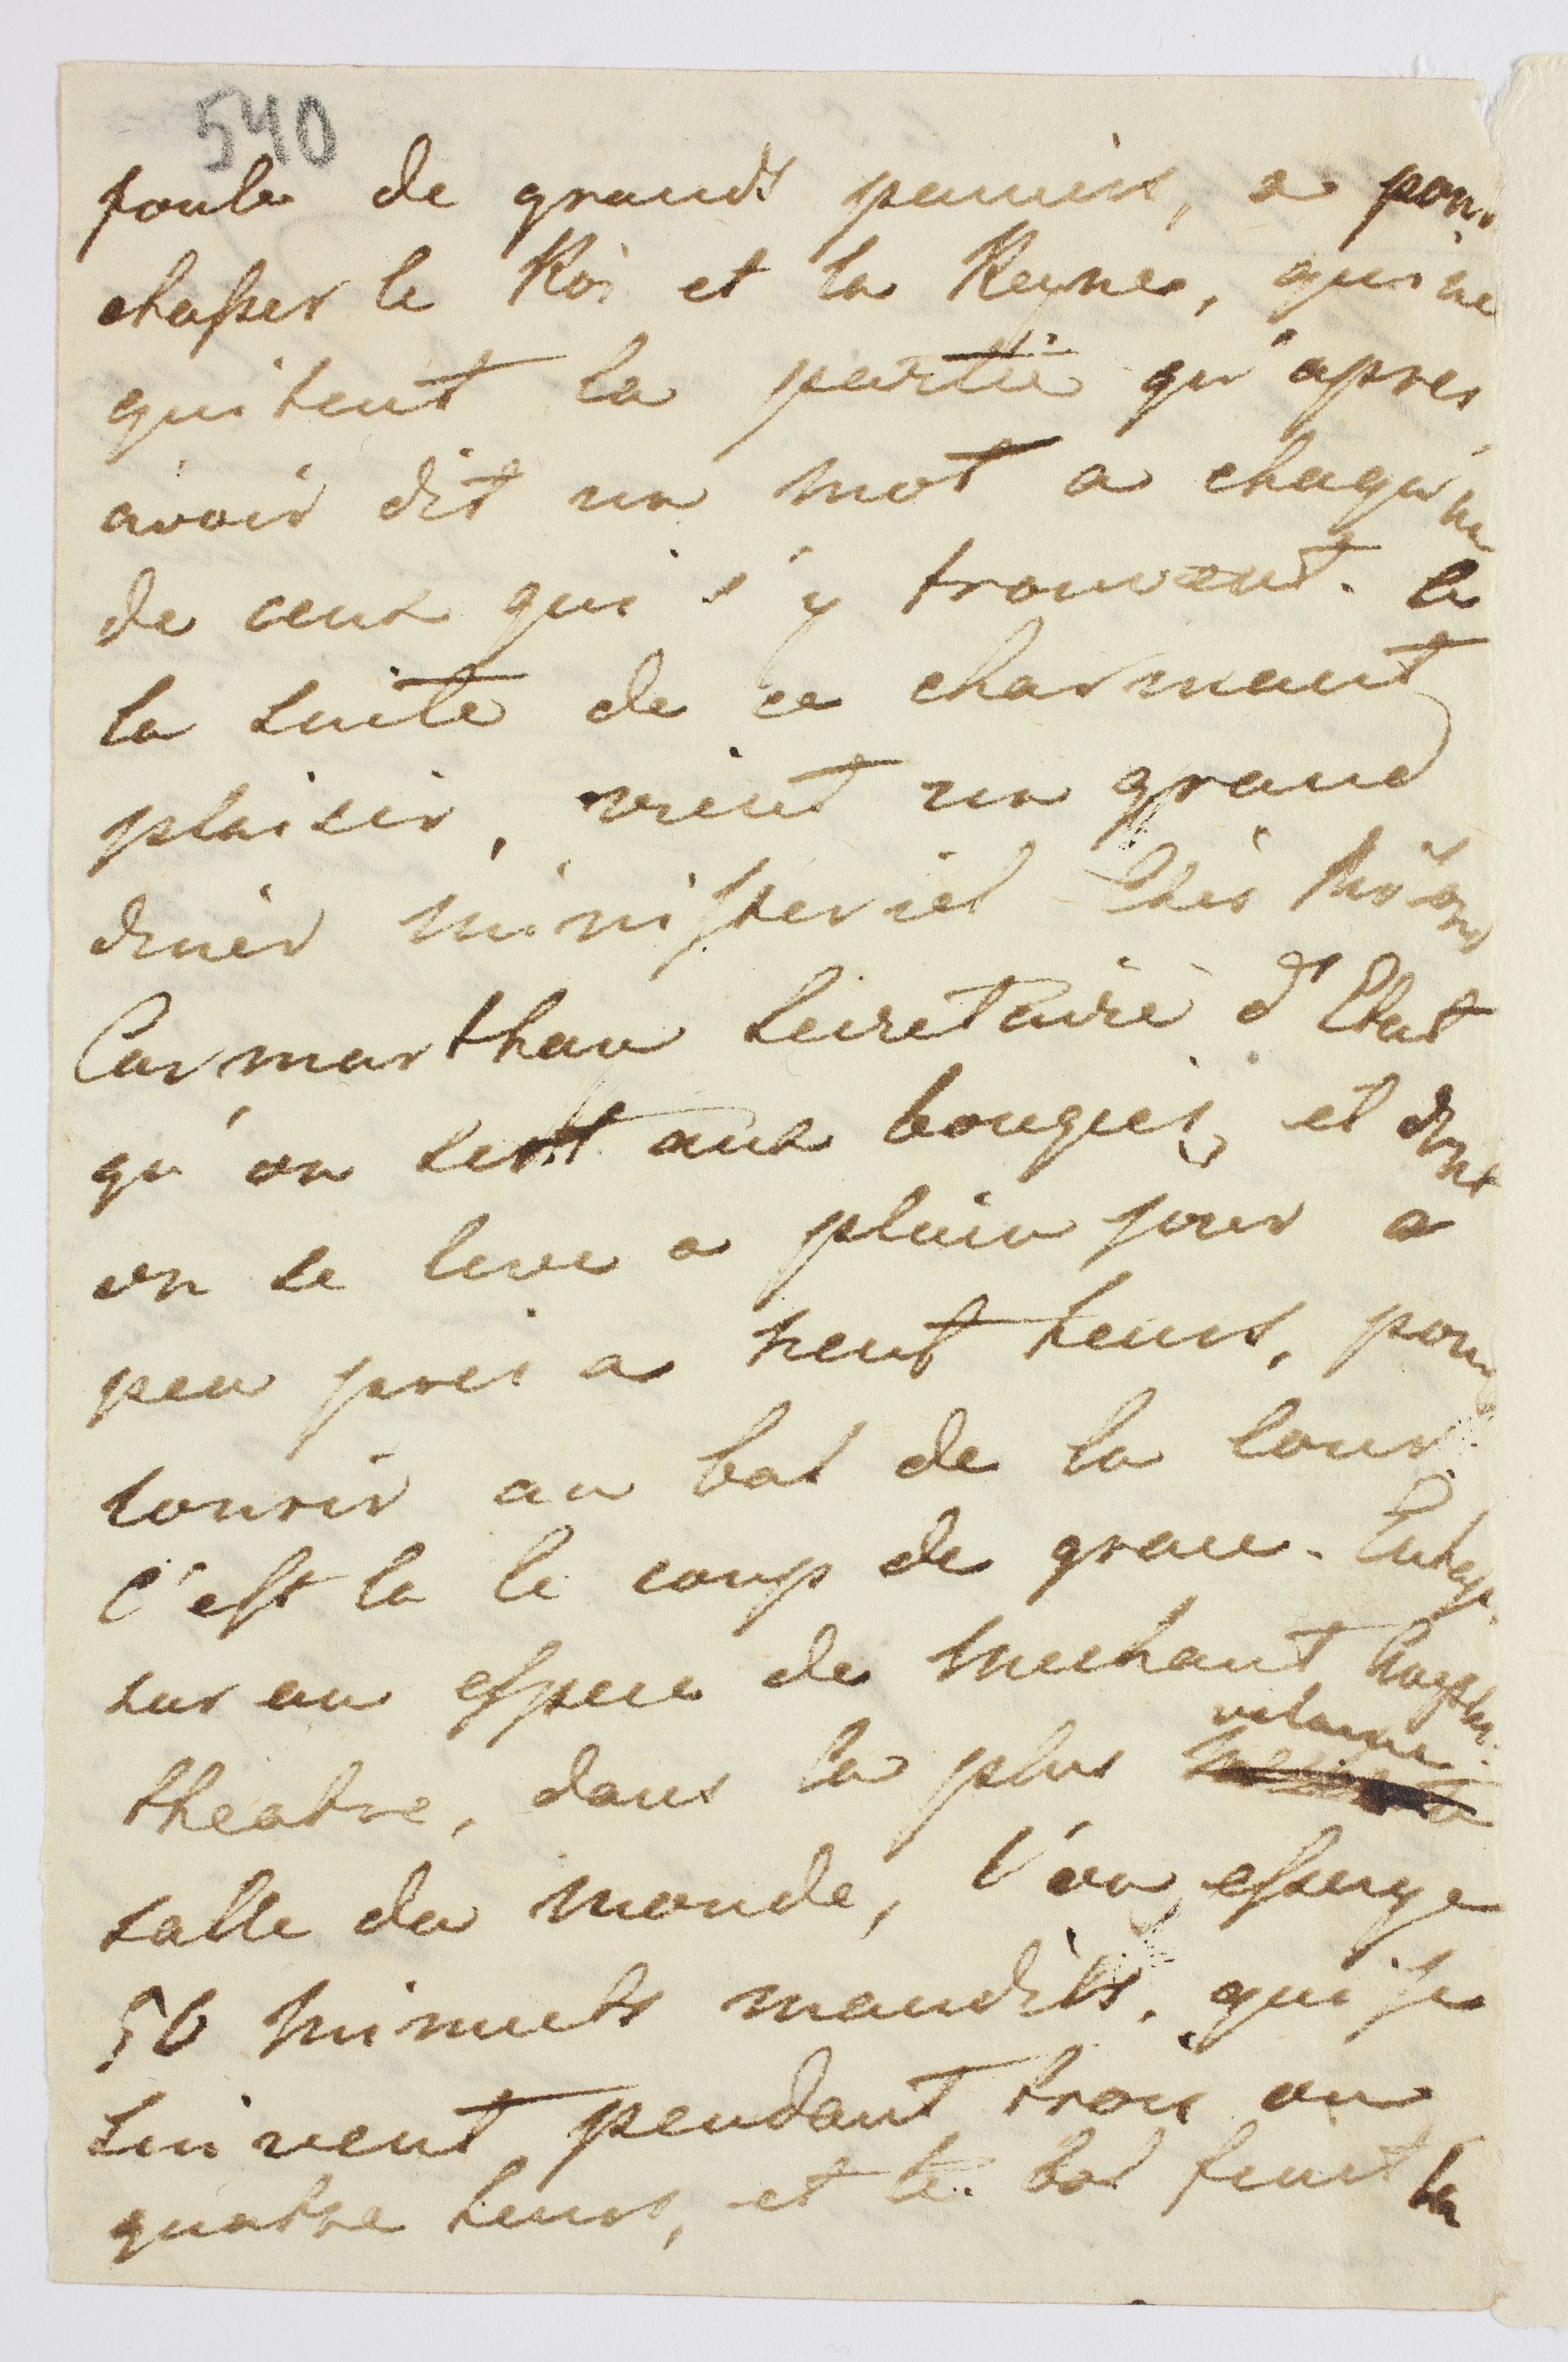 540
foule de grands paniers, a pour
chasser le Roi et la Reyne, qui ne
quitent la partie qu'apres
avoir dit un mot a chaqu'un
de ceux qui s'y trouvent. a
la suite de ce charmant
plaisir, vient un grand
diner ministeriel chés
Carmarthan secretaire d'Etat
qu'on sert aux bougies, et dont
on se leve a plain jour a
peu pres a neuf heurs, pour
courir au bal de la Cour.
C'est la le coup de grace.
sur un espece de mechant
theatre, dans la plus vilaine
salle du monde, l'on essuye
50 minuets maudits, qui se
suivent pendant trois ou
quatre heurs, et le bal finit